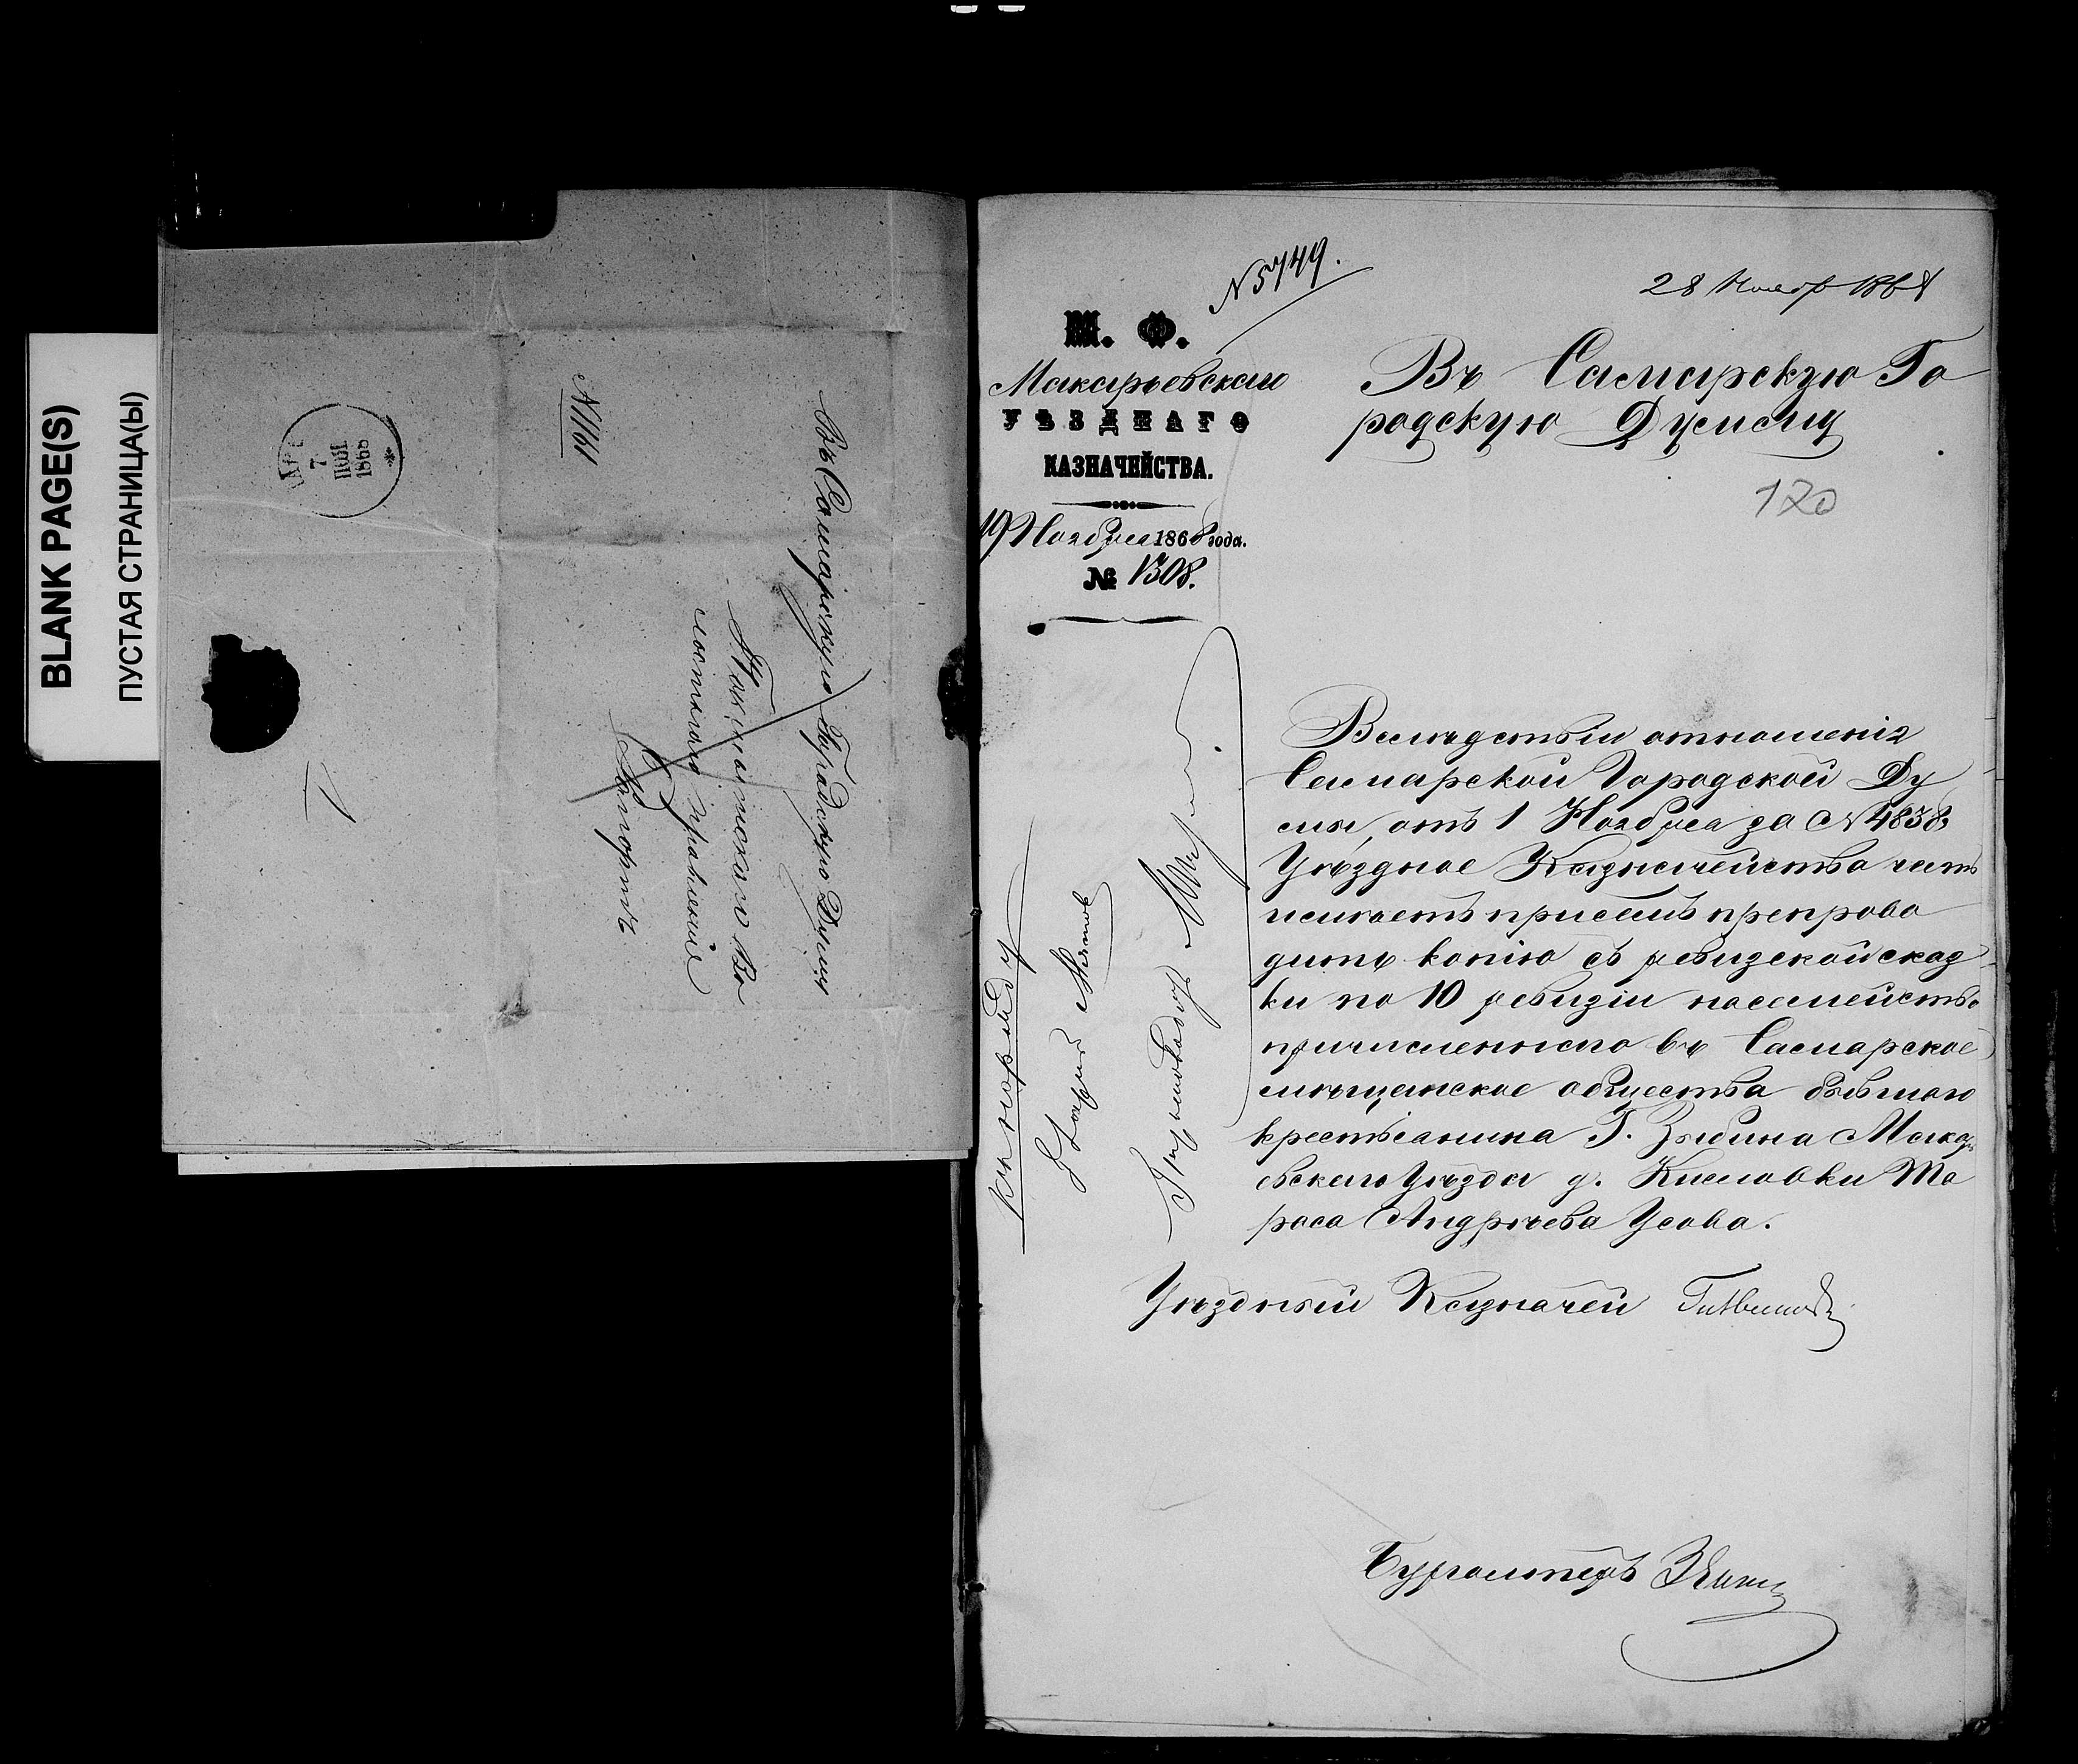 BLANK PAGE(S)
ПУСТАЯ СТРАНИЦА(Ы)
7
1868
№1161
Въ Самарскую Градскую Думу
лостнаго правленія
1
№ 5749.
28 Ноябр 1868
М. Ф.
Макарьевскаго
УѢЗДНАГО
КАЗНАЧЕЙСТВА.
19 Ноября 1868 года.
№ 1308.
Въ Самарскую Го
родскую Думу
120
Вслѣдствіи отношенія
Самарской Городской Ду
мы, отъ 1 Ноября за № 4838,
Уѣздное Казначейство честь
имѣетъ присемъ препрово
дить копію съ ревизской сказ
ки по 10 ревизіи насемейство
причисленнаго въ Самарское
мѣщанское общества бывшаго
крестьянина Г. Зыбина Макарь
евскаго Уѣзда д. Кисловки Та
раса Андрѣева Усова.
Уѣздный Казначей
Бухгалтеръ